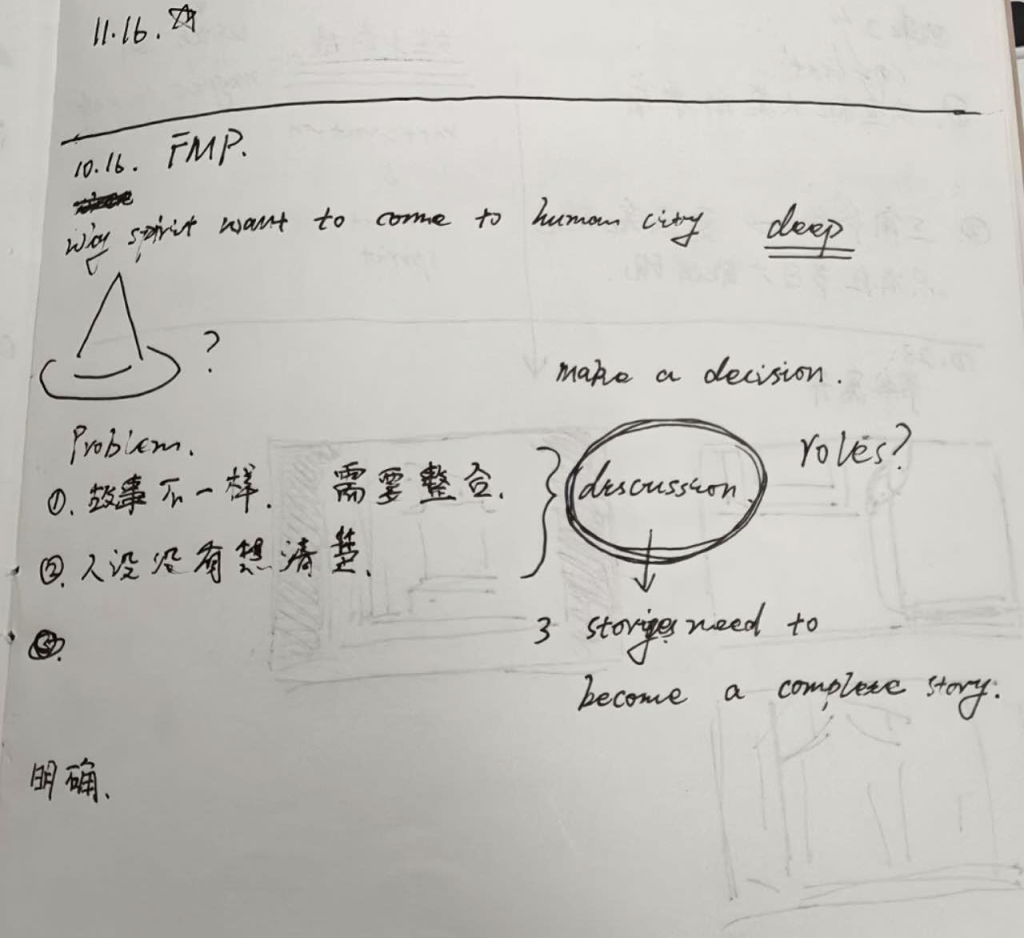 11.16.
10.16. FMP.
why spirit want to come to human city deep
?
make a decision.
Problem.
roles?
①. 故事不一样. 需要整合.
discussion.
②. 人设没有想清楚.
3 stories need to
become a complete story.
明确.